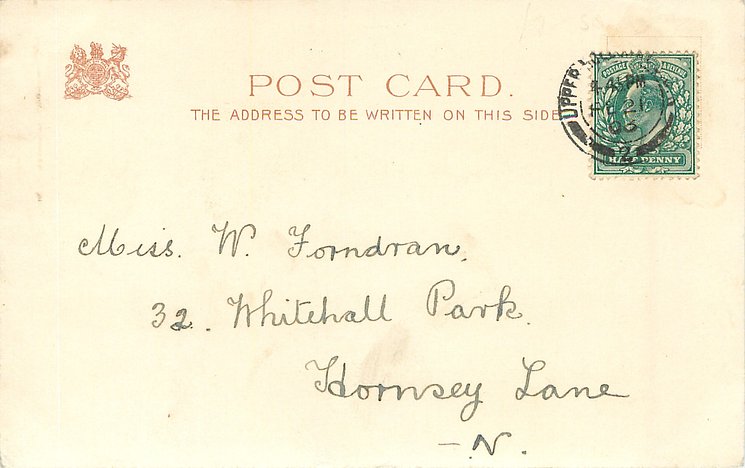 POST CARD.
THE ADDRESS TO BE WRITTEN ON THIS SIDE
UPPER
21
2
POSTAGE REVENUE
HALFPENNY
Miss. W. Forndran,
32. Whitehall Park.
Hornsey Lane
- N.